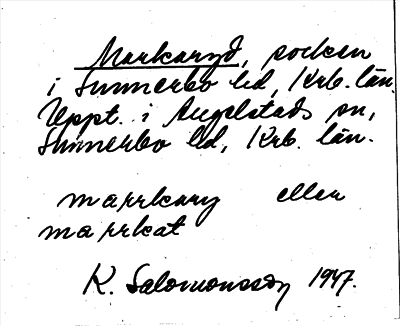 Markaryd, socken
i Sunnerbo hd, Krb. län.
Uppt. i Angelstads sn,
Sunnerbo hd, Krb. län.
marrkary eller
marrkat
K. Salomonsson 1947.